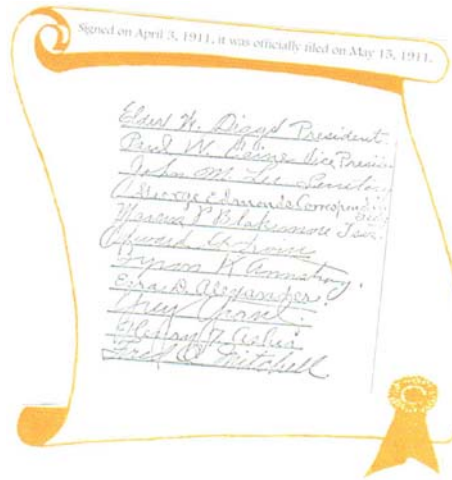 Signed on April 3, 1911, it was officially filed on May 15, 1911.
Elder W. Diggs President.
Paul W. Caine Vice Presi-
John M. Lee Secretary
George Edmonds Correspond.
Marcus P. Blakemore Teas.
Edward G. Irvin
Byron K Armstrong.
Ezra D. Alexander.
Guy Grant.
Henry T. Asher
Fred O. Mitchell.